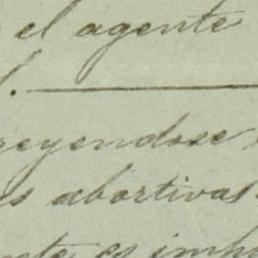 el agente
reyendose
s abortivas
es imp